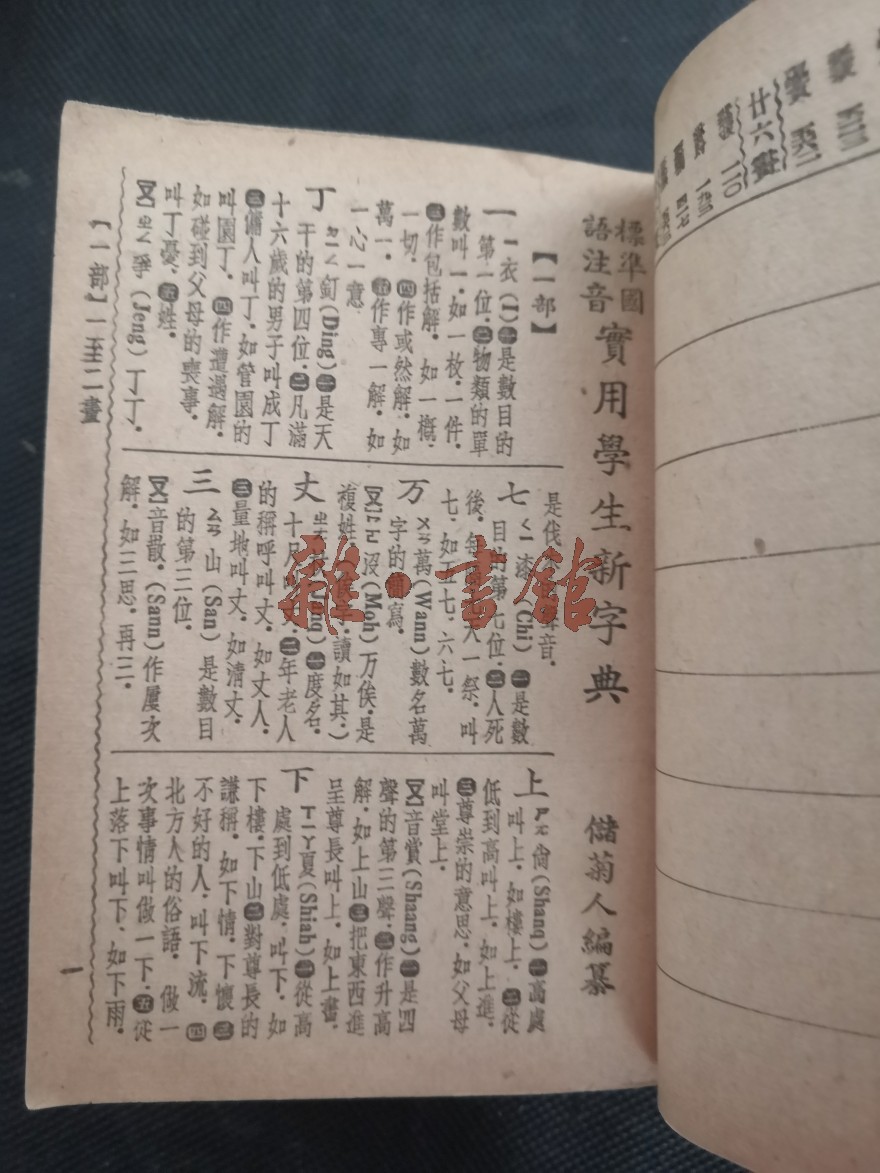 標準國語注音
實用學生新字典
儲菊人編纂
【一部】
一 ㄧ衣(I)㊀是數目的
第一位.㊁物類的單
數叫一.如一枚.一件.
㊂作包括解.如一概.
一切.㊃作或然解.如
萬一.㊄作專一解.如
一心一意
丁 ㄉㄧㄥ釘(Ding)㊀是天
干的第四位.㊁凡滿
十六歲的男子叫成丁
㊂傭人叫丁.如管園的
叫園丁.㊃作遭遇解.
如碰到父母的喪事.
叫丁憂.㊄姓.
㊅ㄓㄥ爭(Jeng)丁丁.
是伐
音.
七 ㄑㄧ漆(Chi)㊀是數
目的第七位.㊁人死
後.每
一祭.叫
七.如五七.六七.
万 ㄨㄢ萬(Wann)數名萬
字的
寫.
又ㄇㄛ沒(Moh)万俟.是
複姓.
讀如其.)
丈
㊀度名.
十尺
㊁年老人
的稱呼叫丈.如丈人.
㊂量地叫丈.如清丈.
三 ㄙㄢ山(San)是數目
的第三位.
又音散.(Sann)作屢次
解.如三思.再三.
上 ㄕㄤ尙(Shanq)㊀高處
叫上.如樓上.㊁從
低到高叫上.如上進.
㊂尊崇的意思.如父母
叫堂上.
又音賞(Shaang)㊀是四
聲的第三聲.㊁作升高
解.如上山.㊂把東西進
呈尊長叫上.如上書.
下 ㄒㄧㄚ夏(Shiah)㊀從高
處到低處.叫下.如
下樓.下山㊁對尊長的
謙稱.如下情.下懷㊂
不好的人.叫下流.㊃
北方人的俗語.做一
次事情叫做一下.㊄從
上落下叫下.如下雨.
【一部】一至二畫
一
雜·書館
廿六畫